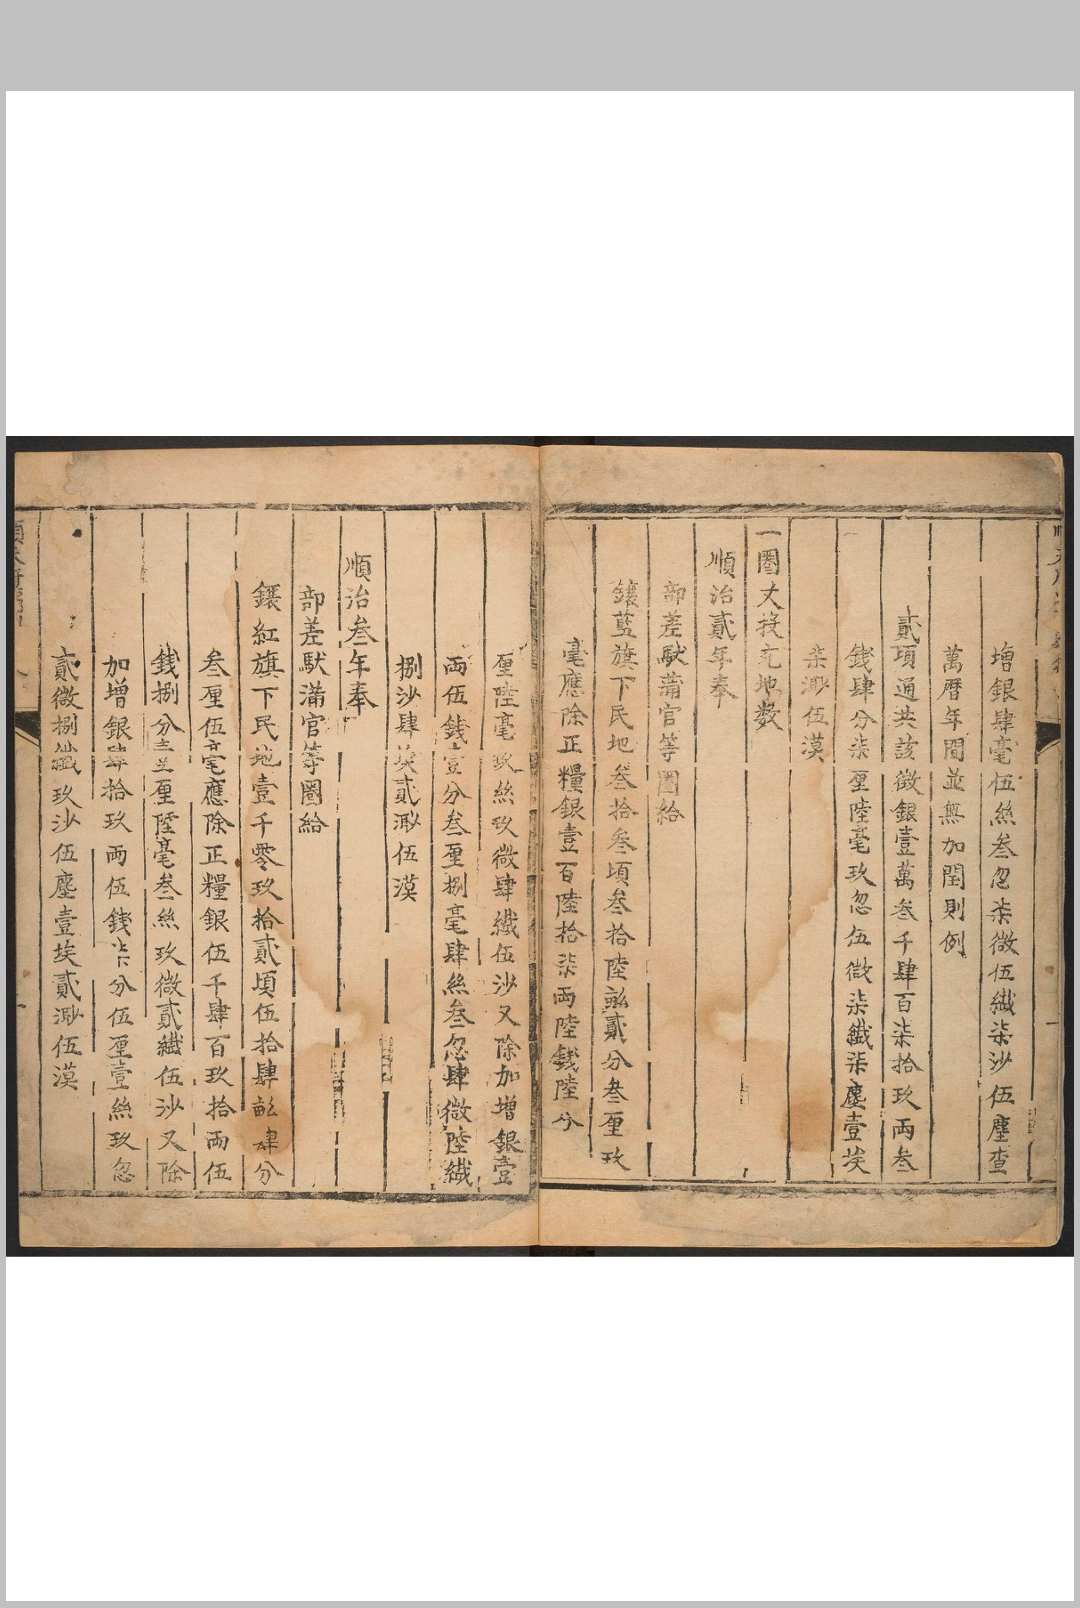 增銀肆毫伍絲叁忽柒微伍纖柒沙伍塵查
萬曆年間並無加閏則例
貳項通共該徵銀壹萬叁千肆百柒拾玖両叁
錢肆分柒厘陸毫玖忽伍微柒纖柒塵壹埃
柒渺伍漠
一圈丈投充地數
順治貳年奉
部差馱滿官等圈給
鑲藍旗下民地叁拾叁頃叁拾陸畝貳分叁厘玖
毫應除正糧銀壹百陸拾柒両陸錢陸分
厘陸毫玖絲玖微肆纖伍沙又除加增銀壹
両伍錢壹分叁厘捌毫肆絲叁忽肆微陸纖
捌沙肆埃貳渺伍漠
順治叁年奉
部差馱滿官等圈給
鑲紅旗下民地壹千零玖拾貳頃伍拾肆畝肆分
叁厘伍毫應除正糧銀伍千肆百玖拾両伍
錢捌分叁厘陸毫叁絲玖微貳纖伍沙又除
加增銀肆拾玖両伍錢柒分伍厘壹絲玖忽
貳微捌纖玖沙伍塵壹埃貳渺伍漠